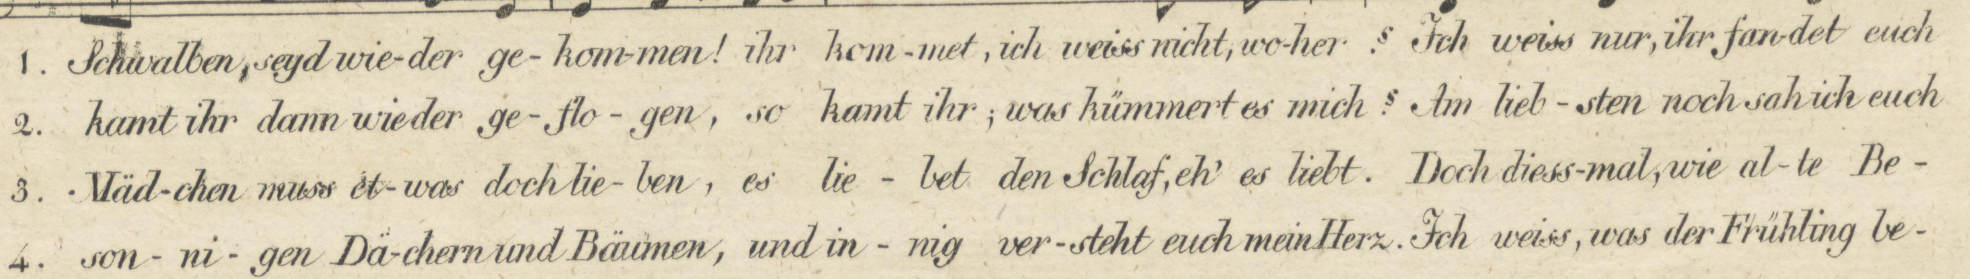 1. Schwalben, seyd wie-der ge-kom-men! ihr kom-met, ich weiss nicht, wo-her? Ich weiss nur, ihr fan-det euch
2. kamt ihr dann wieder ge-flo-gen, so kamt ihr; was kümmert es mich? Am lieb-sten noch sah ich euch
3. Mäd-chen muss et-was doch lie-ben, es lie-bet den Schlaf, eh' es liebt. Doch diess-mal, wie al-te Be-
4. son-ni-gen Dä-chern und Bäumen, und in-nig ver-steht euch mein Herz. Ich weiss, was der Frühling be-